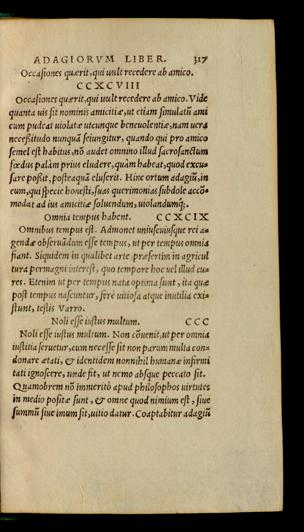 ADAGIORVM LIBER. 317
Occasiones quærit, qui uult recedere ab amico.
CCXCVIII
Occasiones quærit, qui uult recedere ab amico. Vide
quanta uis sit nominis amicitiæ, ut etiam simulatũ ami
cum pudeat uiolatæ utcunque beneuolentiæ, nam uera
necessitudo nunquã seiungitur, quando qui pro amico
semel est habitus, nõ audet omnino illud sacrosanctum
fœdus palàm prius eludere, quàm habeat, quod excu-
sare possit, posteaquã eluserit. Hinc ortum adagiũ, in
eum, qui specie honesti, suas querimonias subdole accõ-
modat ad ius amicitiæ soluendum, uiolandumq;.
Omnia tempus habent. CCXCIX
Omnibus tempus est. Admonet uniuscuiusque rei a-
gendæ obseruãdum esse tempus, ut per tempus omnia
fiant. Siquidem in qualibet arte, præsertim in agricul
tura permagni interest, quo tempore hoc uel illud cu-
res. Etenim ut per tempus nata optima sunt, ita quæ
post tempus nascuntur, ferè uitiosa atque inutilia exi-
stunt, testis Varro.
Noli esse iustus multum. CCC
Noli esse iustus multum. Non cõuenit, ut per omnia
iustitia seruetur, cum necesse sit non parum multa con-
donare ætati, & identidem nonnihil humanæ infirmi
tati ignoscere, unde fit, ut nemo absque peccato sit.
Quamobrem nõ immeritò apud philosophos uirtutes
in medio positæ sunt, & omne quod nimium est, siue
summũ siue imum sit, uitio datur. Coaptabitur adagiũ